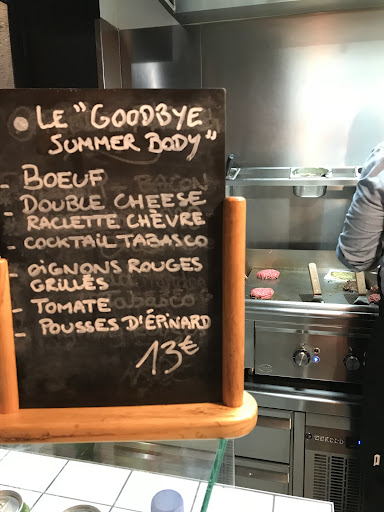 LE "GOODBYE
SUMMER BODY"
- BOEUF
- DOUBLE CHEESE
RACLETTE CHÈVRE
- COCKTAIL TABASCO
- OIGNONS ROUGES
GRILLÉS
- TOMATE
- POUSSES D'ÉPINARD
13€